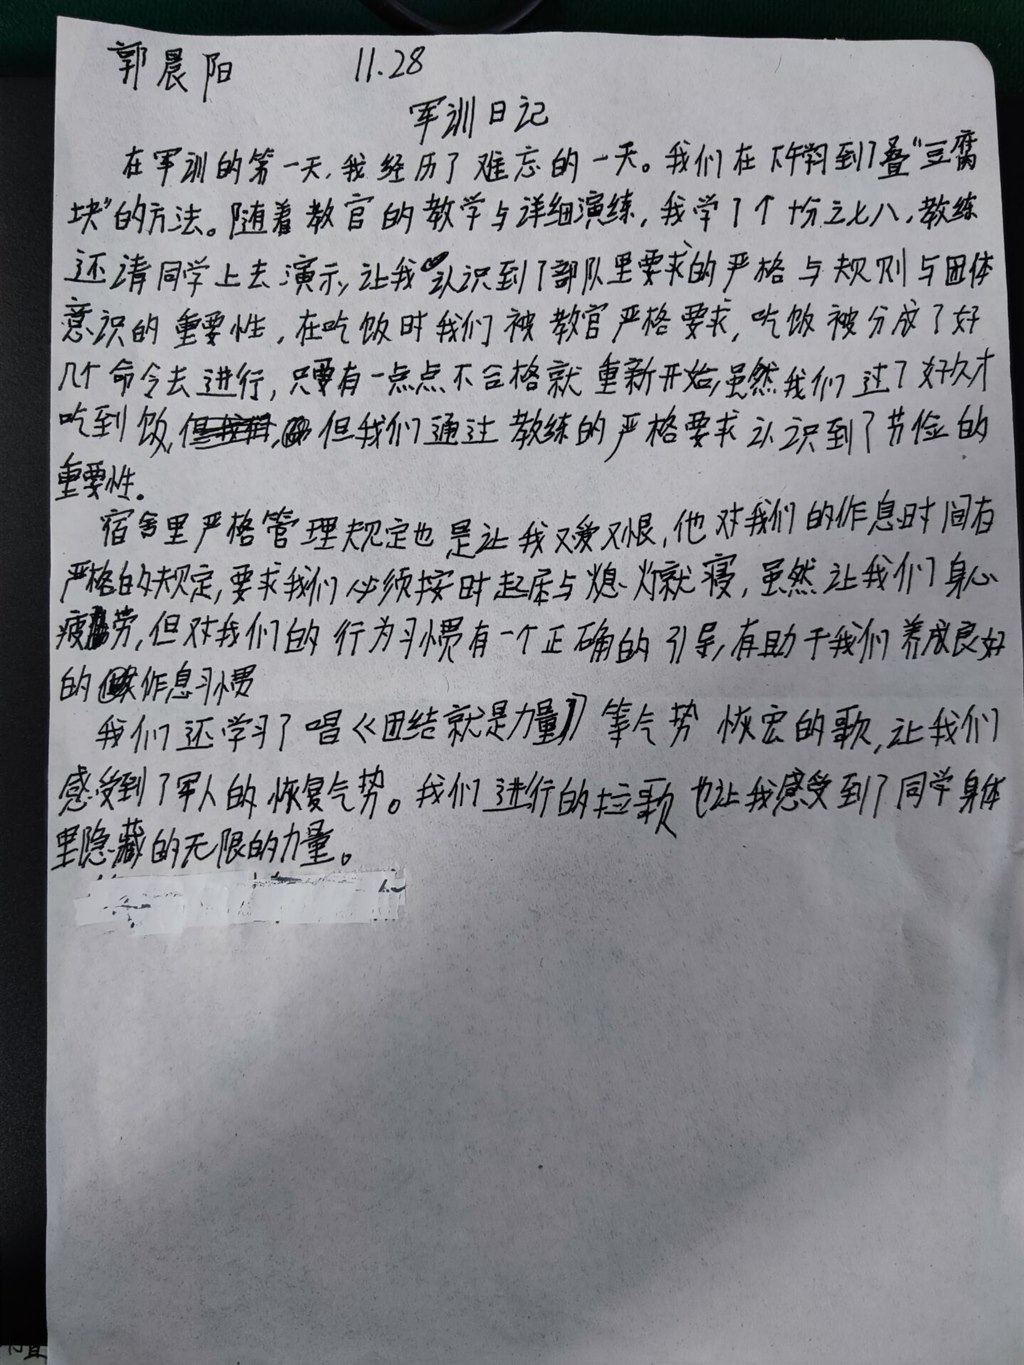 郭晨阳 11.28
军训日记
在军训的第一天,我经历了难忘的一天。我们在下午学到了叠“豆腐
块”的方法。随着教官的教学与详细演练,我学了个十分之七八,教练
还请同学上去演示,让我认识到了部队里要求的严格与规则与团体
意识的重要性,在吃饭时我们被教官严格要求,吃饭被分成了好
几个命令去进行,只要有一点点不合格就重新开始,虽然我们过了好久才
吃到饭,但我们通过教练的严格要求认识到了节俭的
重要性。
宿舍里严格管理规定也是让我又爱又恨,他对我们的作息时间有
严格的规定,要求我们必须按时起床与熄灯就寝,虽然让我们身心
疲劳,但对我们的行为习惯有一个正确的引导,有助于我们养成良好
的作息习惯
我们还学习了唱《团结就是力量》等气势恢宏的歌,让我们
感受到了军人的恢复气势。我们进行的拉歌也让我感受到了同学身体
里隐藏的无限的力量。